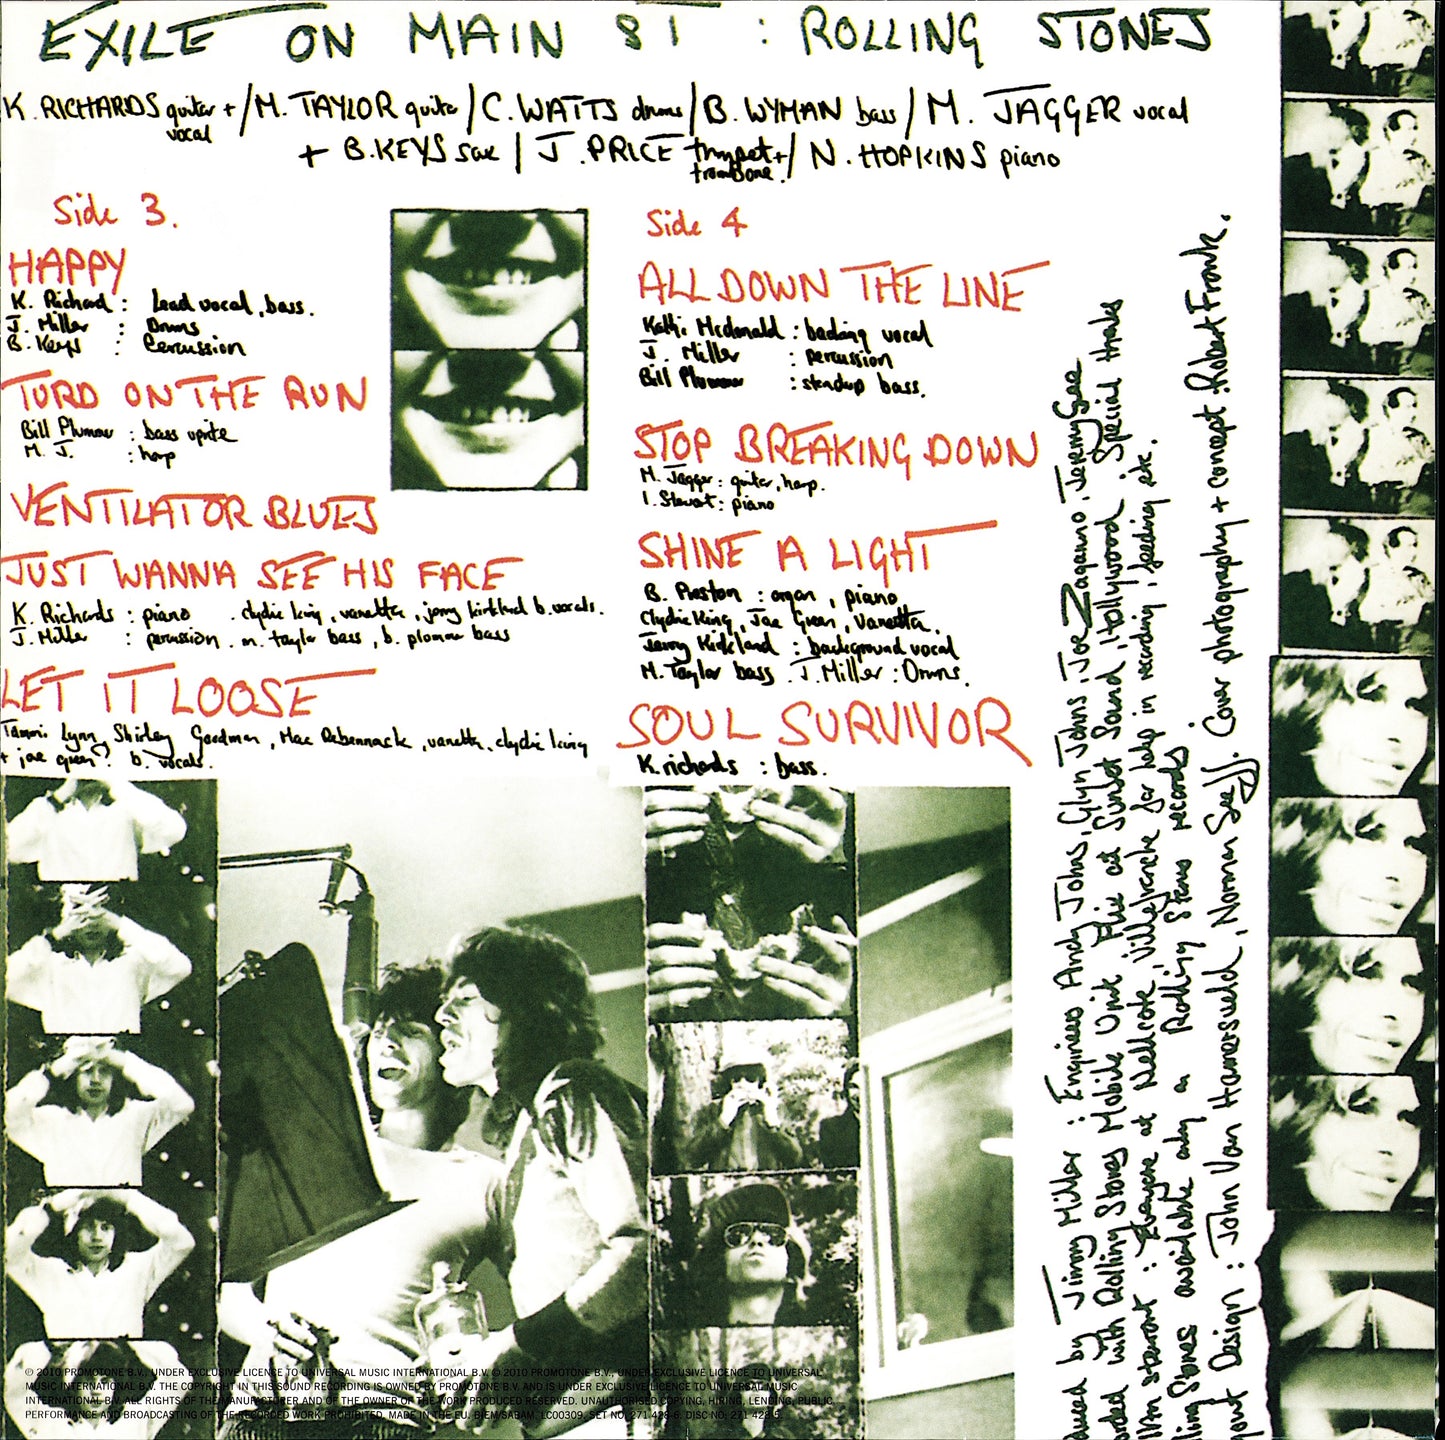 EXILE ON MAIN ST : ROLLING STONES
K. RICHARDS guitar + vocal / M. TAYLOR guitar / C. WATTS drums / B. WYMAN bass / M. JAGGER vocal
+ B. KEYS sax / J. PRICE trumpet + trombone. / N. HOPKINS piano
Side 3.
HAPPY
K. Richard : Lead vocal, bass.
J. Miller : Drums
B. Keys : Percussion
TURD ON THE RUN
Bill Plummer : bass uprite
M. J. : harp
VENTILATOR BLUES
JUST WANNA SEE HIS FACE
K. Richards : piano . clydie king, vanetta, jerry kirkland b. vocals.
J. Miller : percussion. m. taylor bass, b. plommer bass
LET IT LOOSE
Tammi Lynn, Shirley Goodman, Mac Rebennack, vanetta, clydie king
+ joe green? b. vocals.
Side 4
ALL DOWN THE LINE
Kathi Mcdonald : backing vocal
J. Miller : percussion
Bill Plummer : standup bass.
STOP BREAKING DOWN
M. Jagger : guitar, harp.
I. Stewart : piano
SHINE A LIGHT
B. Preston : organ, piano
Clydie King, Joe Green, Vanetta,
Jerry Kirkland : background vocal
M. Taylor bass . J. Miller : Drums.
SOUL SURVIVOR
K. richards : bass.
by Jimmy Miller : Engineers Andy Johns, Glyn Johns, Joe Zaganno, Jeremy Gee
with Rolling Stones Mobile Unit at Sunset Sound, Hollywood. Special thanks
stewart : Everyone at Nellcote, Villefranche for help in recording, feeding etc.
Stones available only on Rolling Stones records
Design : John Van Hamersveld, Norman Seeff. Cover photography + concept : Robert Frank.
℗ 2010 PROMOTONE B.V., UNDER EXCLUSIVE LICENCE TO UNIVERSAL MUSIC INTERNATIONAL B.V. © 2010 PROMOTONE B.V., UNDER EXCLUSIVE LICENCE TO UNIVERSAL
MUSIC INTERNATIONAL B.V. THE COPYRIGHT IN THIS SOUND RECORDING IS OWNED BY PROMOTONE B.V. AND IS UNDER EXCLUSIVE LICENCE TO UNIVERSAL MUSIC
INTERNATIONAL B.V. ALL RIGHTS OF THE MANUFACTURER AND OF THE OWNER OF THE WORK PRODUCED RESERVED. UNAUTHORISED COPYING, HIRING, LENDING, PUBLIC
PERFORMANCE AND BROADCASTING OF THE RECORDED WORK PROHIBITED. MADE IN THE EU. BIEM/SABAM. LC00309. SET NO. 271 428-6. DISC NO. 271 428-5.